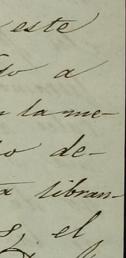 este
so a
la me-
o de-
a libran-
s, el